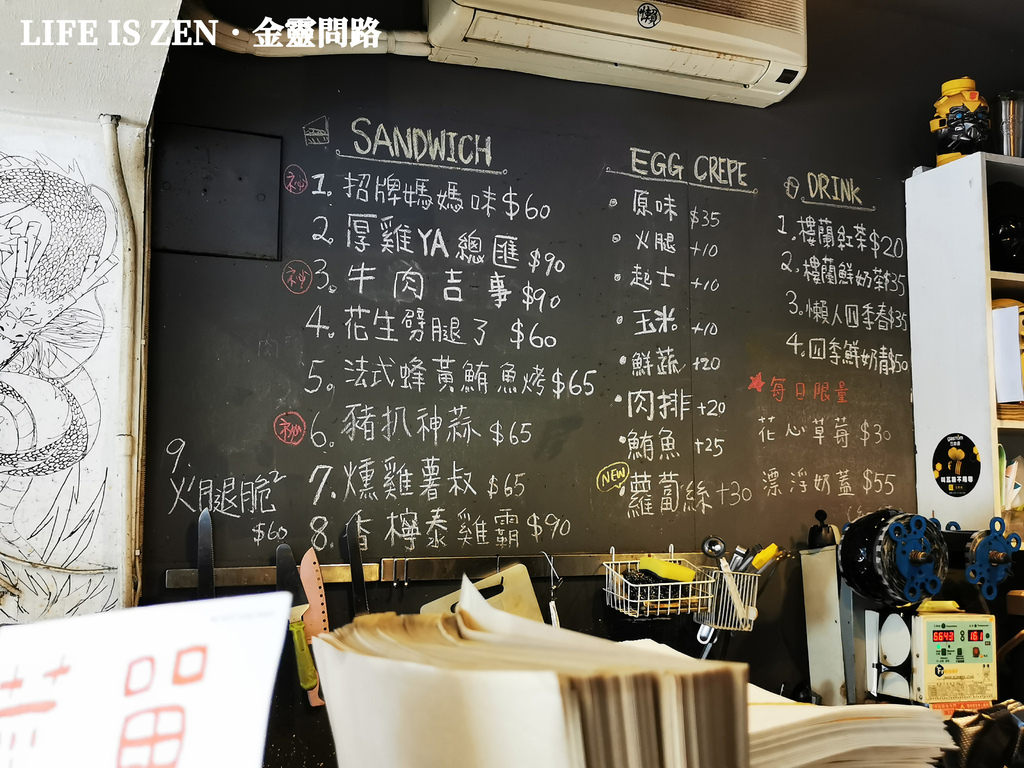 LIFE IS ZEN・金靈問路
懶
SANDWICH
祕 1. 招牌媽媽味 $60
2. 厚雞YA總匯 $90
祕 3. 牛肉吉事 $90
4. 花生劈腿了 $60
5. 法式蜂黃鮪魚烤 $65
祕 6. 豬扒神蒜 $65
7. 燻雞薯叔 $65
8. 香檸泰雞霸 $90
9.
火腿脆²
$60
EGG CREPE
原味 $35
火腿 +10
起士 +10
玉米 +10
鮮蔬 +20
肉排 +20
鮪魚 +25
NEW 蘿蔔絲 +30
DRINK
1. 樓蘭紅茶 $20
2. 樓蘭鮮奶茶 $35
3. 懶人四季春 $35
4. 四季鮮奶青 $50
★每日限量
花心草莓 $30
漂浮奶蓋 $55